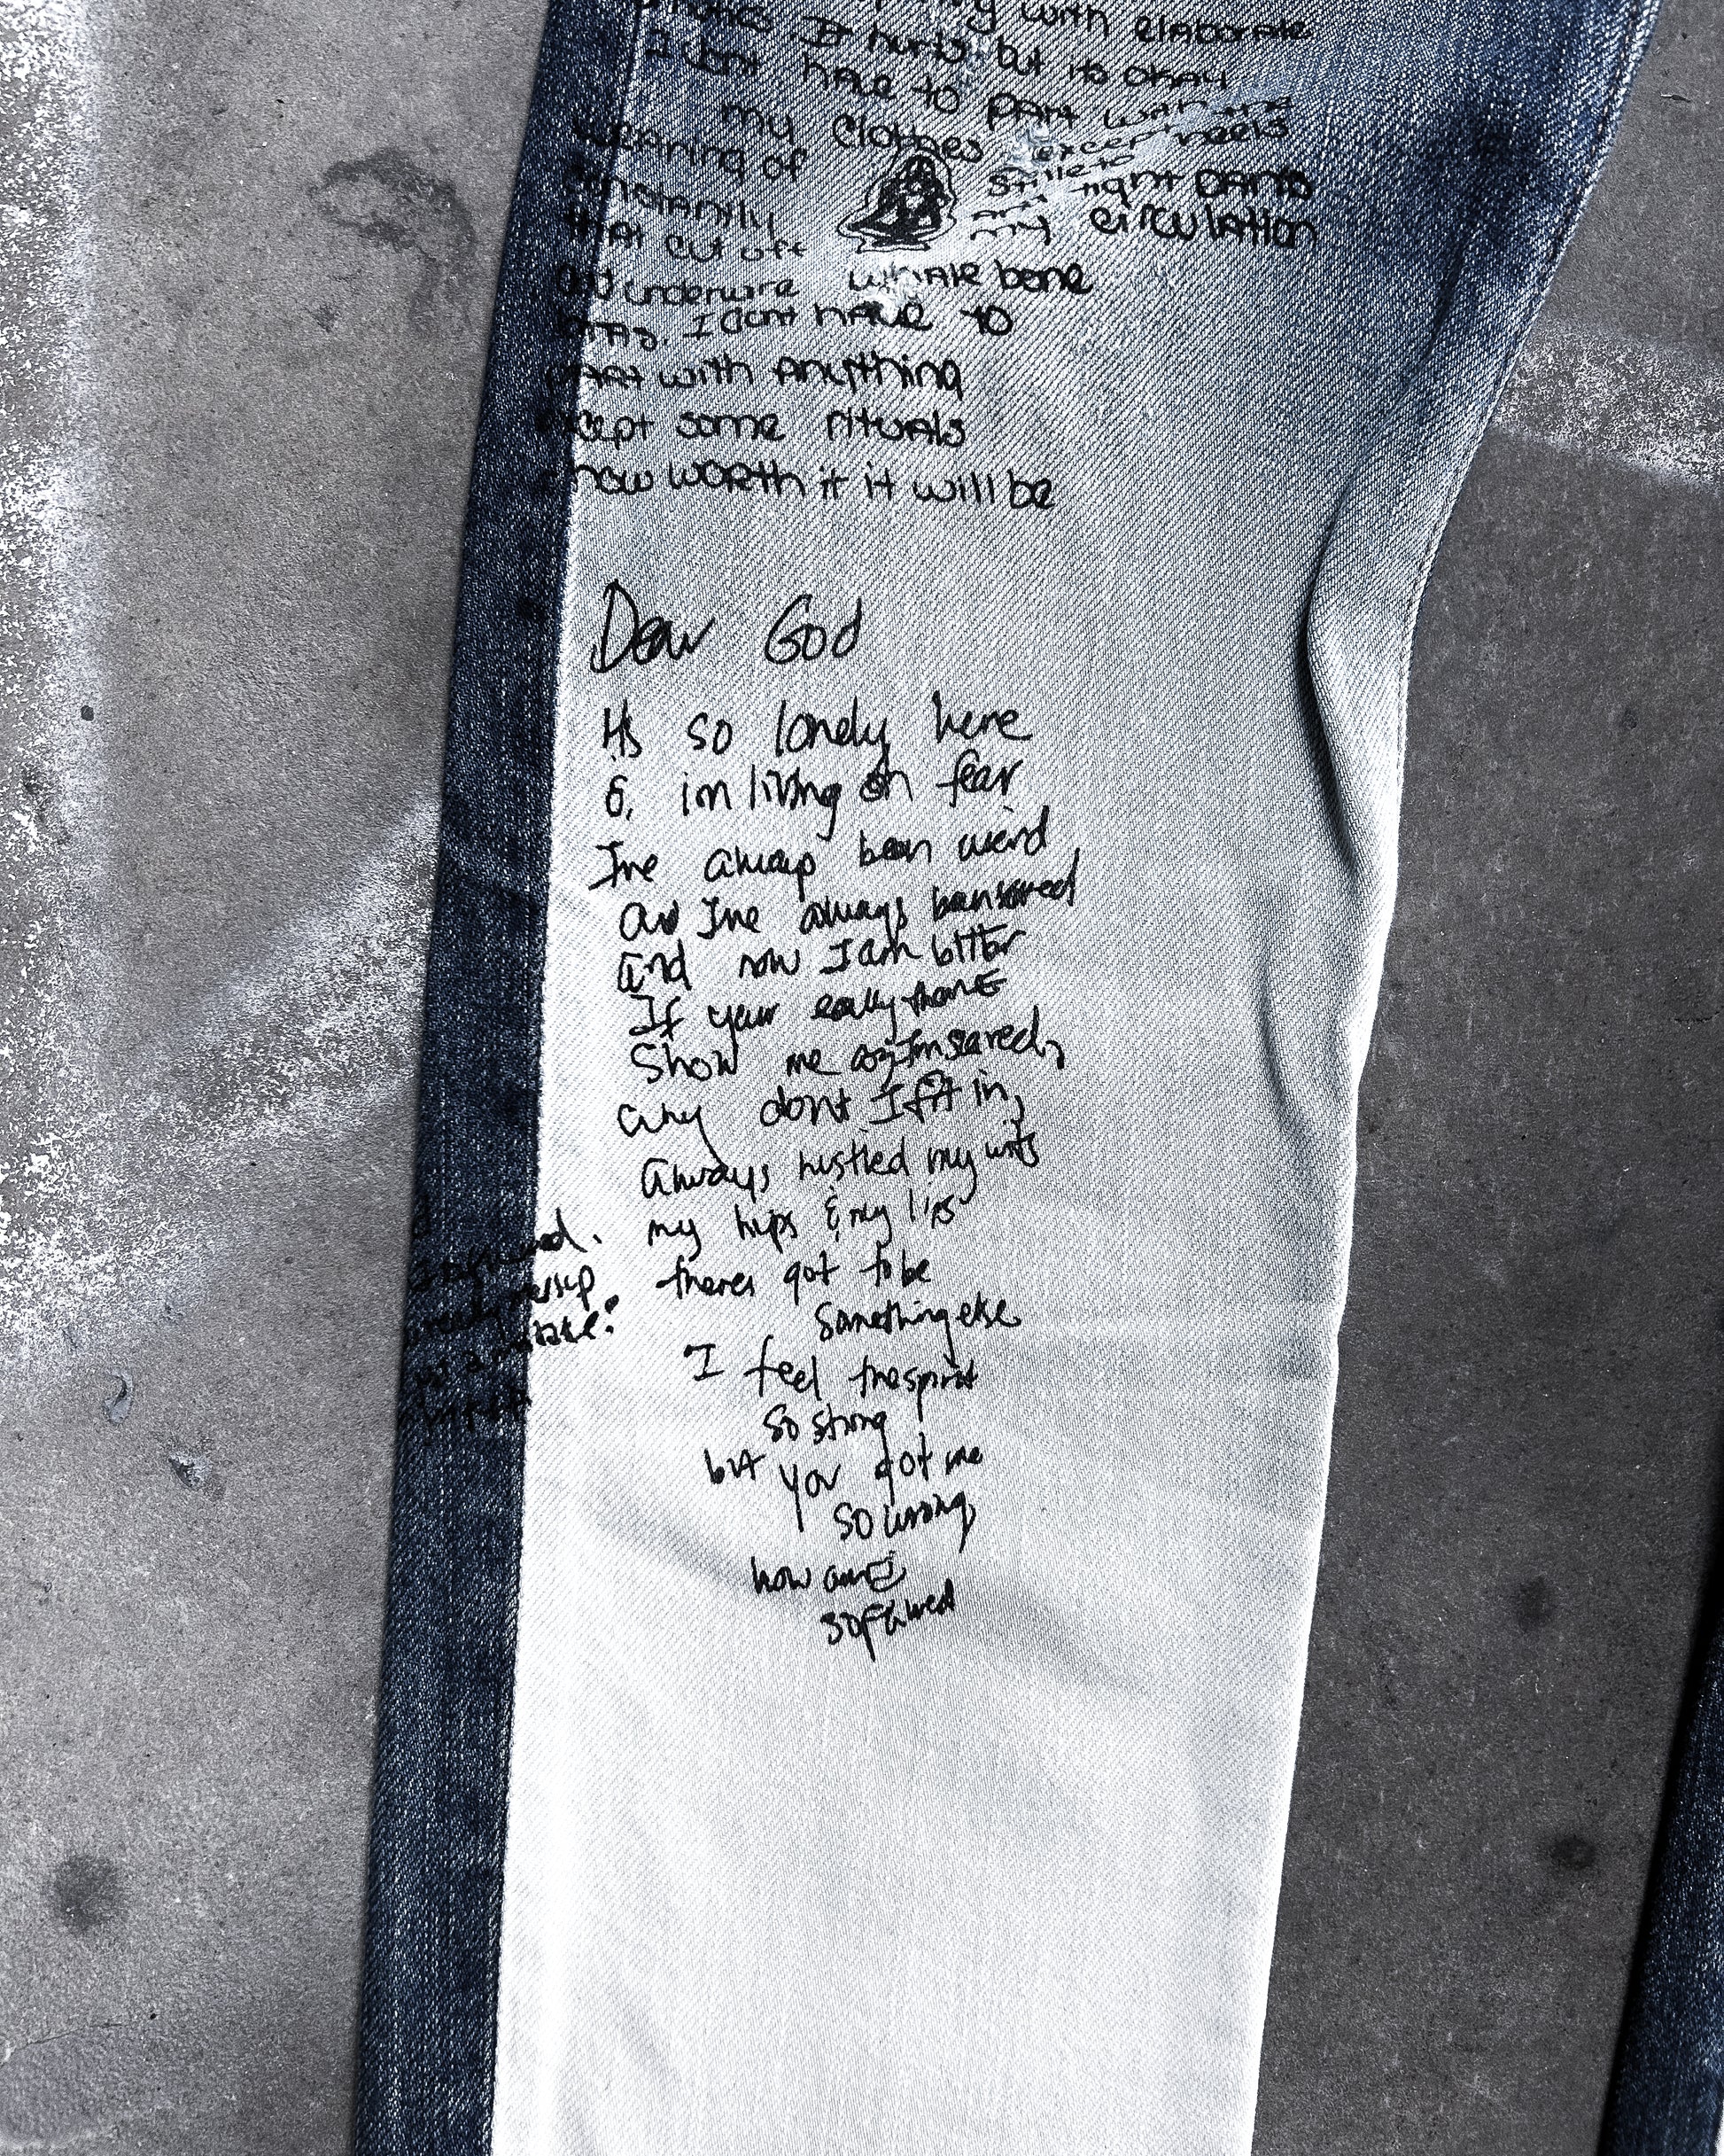 with elaborate
It hurts but its okay
I dont have to part with the
wearing of my clothes except heels
constantly stiletto
and tight pants
that cut off my circulation
and underwire whale bone
I dont have to
part with anything
except some rituals
how worth it it will be
Dear God
Its so lonely here
& im living on fear
Ive always been weird
and Ive always been scared
and now I am bitter
If your really there
Show me I'm scared,
why dont I fit in,
Always hustled my wits
my hips & my lips
theres got to be
something else
I feel the spirit
so strong
but you got me
so wrong,
how am I
so flawed